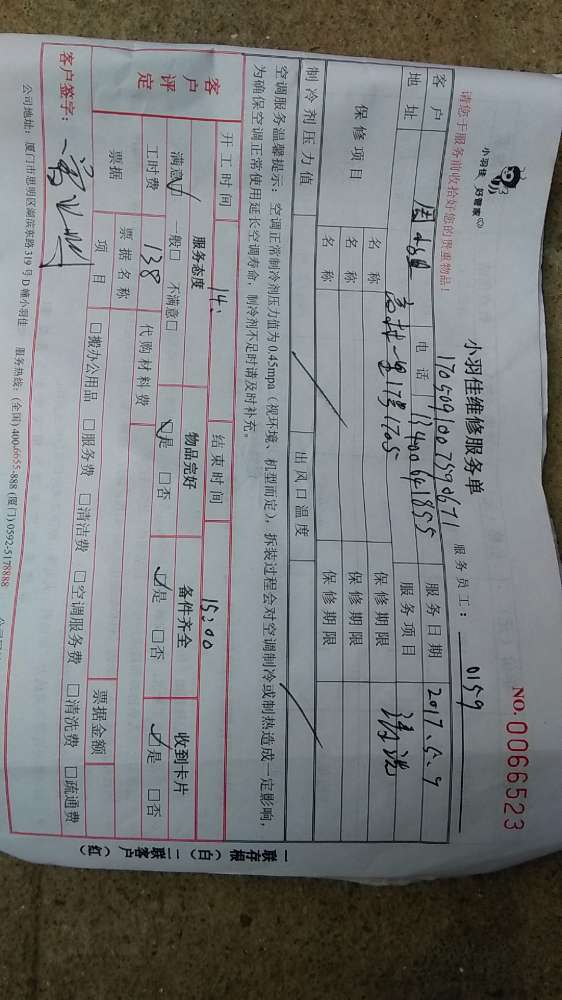 小羽佳 好管家
小羽佳维修服务单
NO.0066523
170509100759d671
服务员工: 0159
请您于服务前收拾好您的贵重物品!
客户 电话 13400641855 服务日期 2017.5.9
地址 服务项目 清洗
保修项目 名称 保修期限
名称 保修期限
名称 保修期限
制冷剂压力值 出风口温度
空调服务温馨提示:空调正常制冷剂压力值为0.45mpa(视环境、机型而定),拆装过程会对空调制冷或制热造成一定影响,
为确保空调正常使用延长空调寿命,制冷剂不足时请及时补充。
开工时间 14: 结束时间 15:00
客户评定 服务态度 物品完好 备件齐全 收到卡片
满意☑ 一般□ 不满意□ ☑是 □否 ☑是 □否 ☑是 □否
工时费 138 代购材料费
票据 票据名称 票据金额
项目 □搬办公用品 □服务费 □清洁费 □空调服务费 □清洗费 □疏通费
客户签字:
公司地址:厦门市思明区湖滨东路319号D幢小羽佳 服务热线:(全国)400-6655-888 (厦门)0592-5178888
一联存根(白) 二联客户(红)